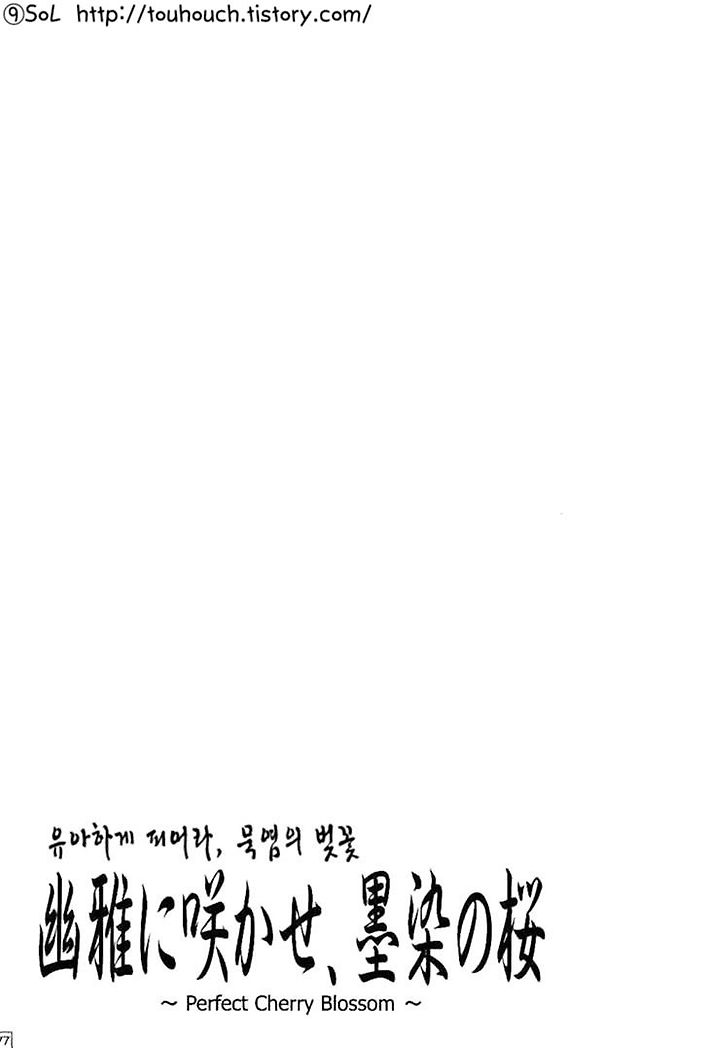 ⑨SoL http://touhouch.tistory.com/
유아하게 피어라, 묵염의 벚꽃
幽雅に咲かせ、墨染の桜
～ Perfect Cherry Blossom ～